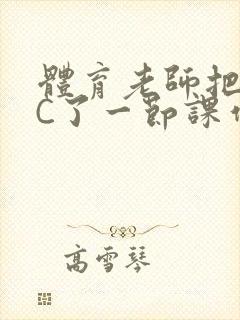 體育老師把
C了一節課
高雪琴